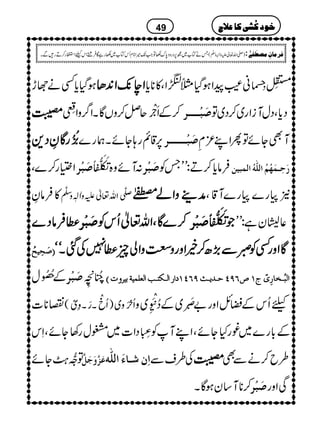 خود کُشی کا علاج
49
مستقل جسمانی عیب پیدا ہوگیا مثلاً لنگڑا، کانا یا اچانک اندھا ہوگیا یا کسی نے جھاڑ
دیا، دل آزاری کر دی تو صَبْر کر کے اَجْر حاصل کروں گا۔ اگر واقعی مصیبت
آبھی جائے تو پھر اپنے عزم پر قائم رہا جائے۔ ہمارے بُزُرگانِ دین
رَحِمَہُمُ اللہُ الْمُبِیْن فرمایا کرتے: ”جس کو صَبْر نہ آئے وہ تَکَلُّفاً صَبْر اختیار کرے،
نیز پیارے پیارے آقا، مدینے والے مصطفٰے صلی اللہ تعالیٰ علیہ واٰلہٖ وسلّم کا فرمانِ
عالیشان ہے: ”جو تَکَلُّفاً صَبْر کرے گا، اللہ تعالیٰ اُس کو صَبْر عطا فرما دے
گا اور کسی کو صبر سے بڑھ کر خیر اور وسعت والی چیز عطا نہیں کی گئی۔“ (صَحِیحُ
الْبُخارِی ج۱ ص۴۹۶ حدیث ۱۴۶۹ دار الکتب العلمیۃ بیروت) چُنانچِہ صَبْر کے حُصُول
کیلئے اُس کے فضائل اور بے صَبری کے دُنْیَوی و اُخْرَوی نقصانات
کے بارے میں غور کیا جائے، اپنے آپ کو عبادات میں مشغول رکھا جائے، اِس
طرح کرنے سے بھی مصیبت کی طرف سے اِن شاءَ اللہ عَزَّوَجَلَّ توجُّہ ہٹ جائے
گی اور صَبْر کرنا آسان ہوگا۔